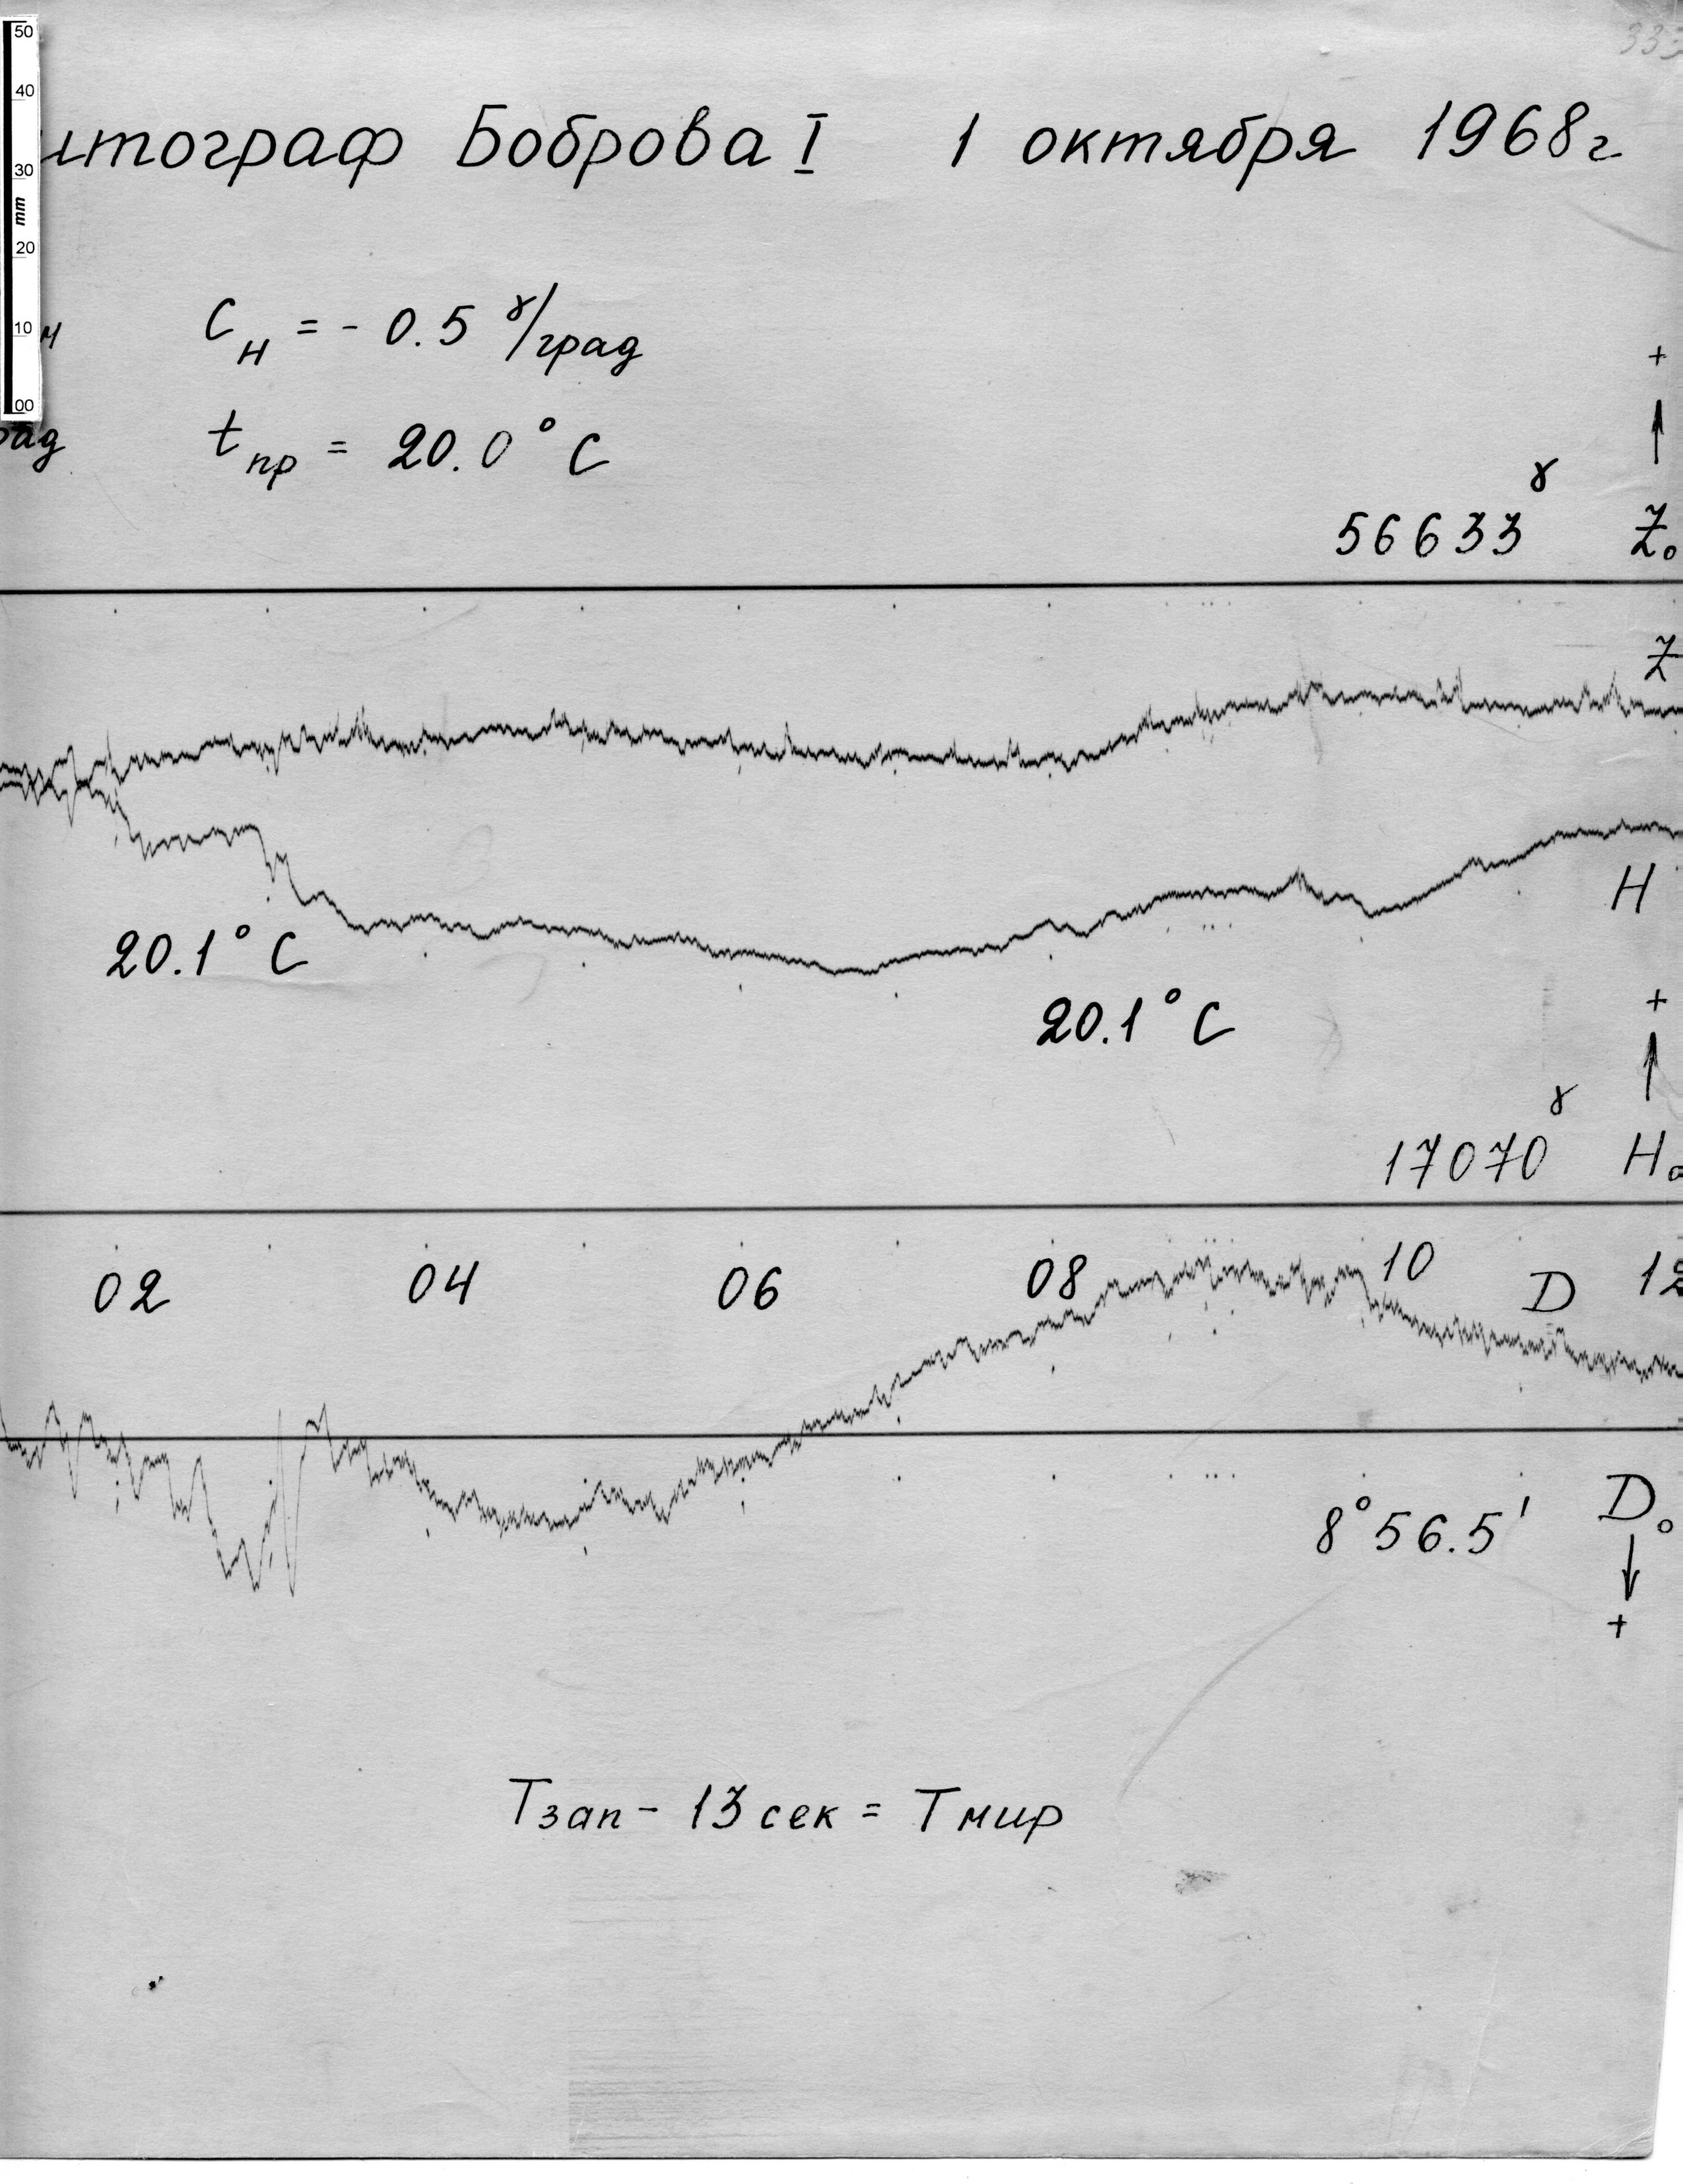 50
40
30
mm
20
10
00
333
итограф Боброва I 1 октября 1968г
C_H = - 0.5 γ/град
рад t_пр = 20.0° C
+
56633γ Z₀
Z
H
20.1° C
20.1° C
+
17070γ H₀
02 04 06 08 10 D 12
8°56.5' D₀
+
Tзап - 13 сек = Tмир